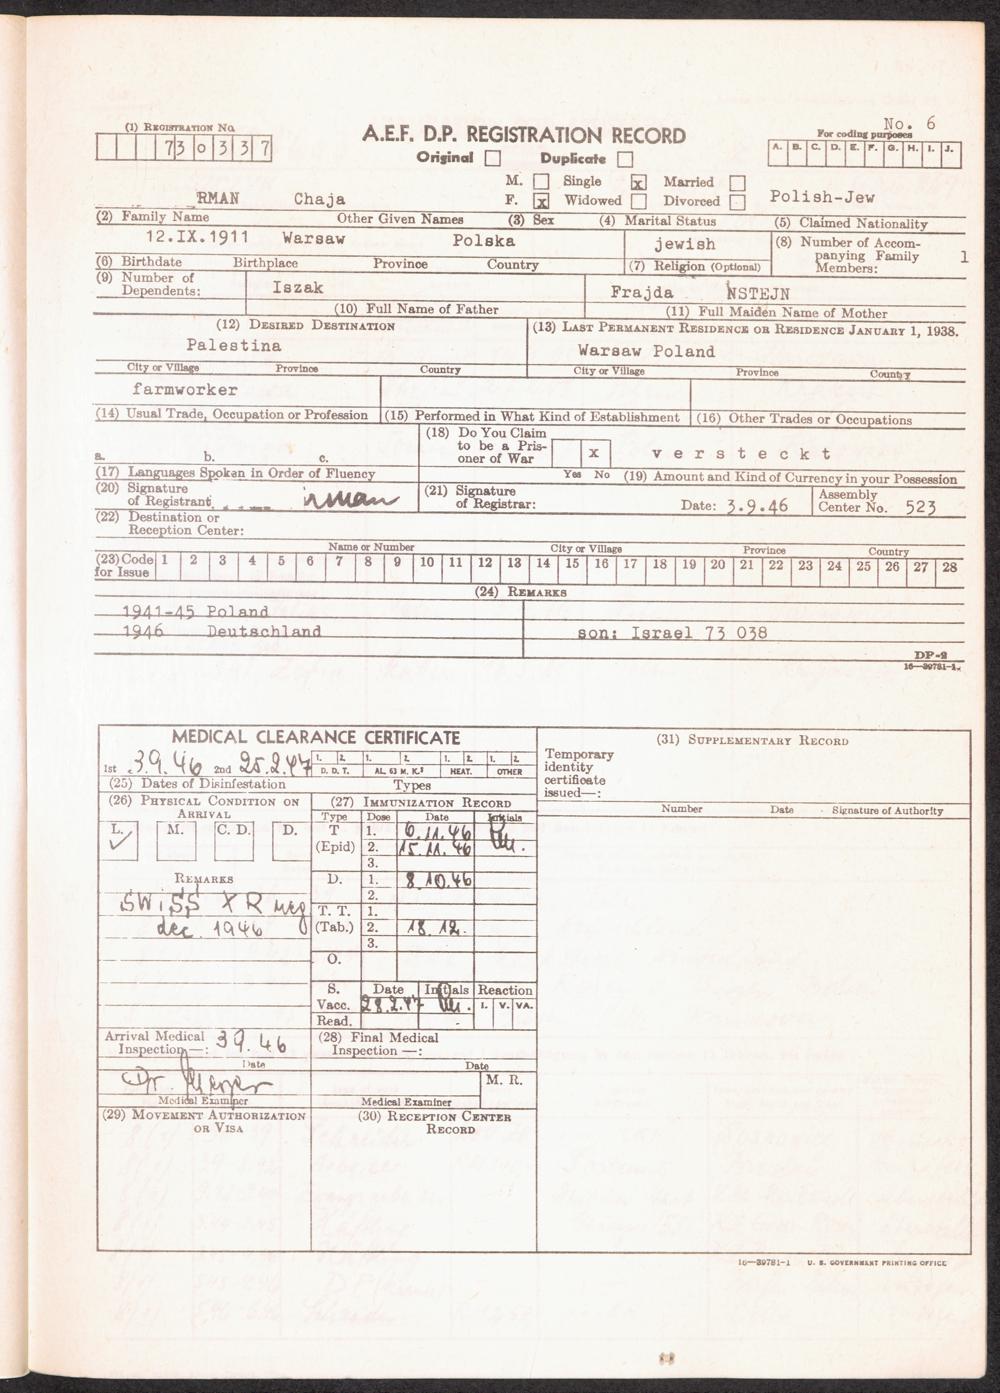 No. 6
(1) REGISTRATION No.
7303 37
A.E.F. D.P. REGISTRATION RECORD
Original Duplicate
For coding purposes
A. B. C. D. E. F. G. H. I. J.
M. Single x Married
RMAN Chaja F. x Widowed Divorced Polish-Jew
(2) Family Name Other Given Names (3) Sex (4) Marital Status (5) Claimed Nationality
12.IX.1911 Warsaw Polska jewish (8) Number of Accompanying Family Members: 1
(6) Birthdate Birthplace Province Country (7) Religion (Optional)
(9) Number of Dependents: Iszak Frajda NSTEJN
(10) Full Name of Father (11) Full Maiden Name of Mother
(12) DESIRED DESTINATION (13) LAST PERMANENT RESIDENCE OR RESIDENCE JANUARY 1, 1938.
Palestina Warsaw Poland
City or Village Province Country City or Village Province Country
farmworker
(14) Usual Trade, Occupation or Profession (15) Performed in What Kind of Establishment (16) Other Trades or Occupations
(18) Do You Claim to be a Prisoner of War x versteckt
a. b. c.
(17) Languages Spoken in Order of Fluency Yes No (19) Amount and Kind of Currency in your Possession
(20) Signature of Registrant rman (21) Signature of Registrar: Date: 3.9.46 Assembly Center No. 523
(22) Destination or Reception Center:
Name or Number City or Village Province Country
(23) Code for Issue 1 2 3 4 5 6 7 8 9 10 11 12 13 14 15 16 17 18 19 20 21 22 23 24 25 26 27 28
(24) REMARKS
1941-45 Poland
1946 Deutschland son: Israel 73 038
DP-2
16—39781-1
MEDICAL CLEARANCE CERTIFICATE
1st 3.9.46 2nd 25.2.47 1. 2. 1. 2. 1. 2. 1. 2.
D. D. T. AL. 63 M. K.3 HEAT. OTHER
(25) Dates of Disinfestation Types
(26) PHYSICAL CONDITION ON ARRIVAL
L. ✓ M. C. D. D.
REMARKS
SWISS XR neg
dec. 1946
(27) IMMUNIZATION RECORD
Type Dose Date Initials
T 1. 6.11.46
(Epid) 2. 15.11.46
3.
D. 1. 8.10.46
2.
T. T. 1.
(Tab.) 2. 18.12.
3.
O.
S. Date Initials Reaction
Vacc. 28.2.47 I. V. VA.
Read.
Arrival Medical Inspection—: 3 9.46
Date
Dr.
Medical Examiner
(28) Final Medical Inspection —:
Date
M. R.
Medical Examiner
(29) MOVEMENT AUTHORIZATION OR VISA
(30) RECEPTION CENTER RECORD
(31) SUPPLEMENTARY RECORD
Temporary identity certificate issued—:
Number Date Signature of Authority
16—39781-1 U. S. GOVERNMENT PRINTING OFFICE